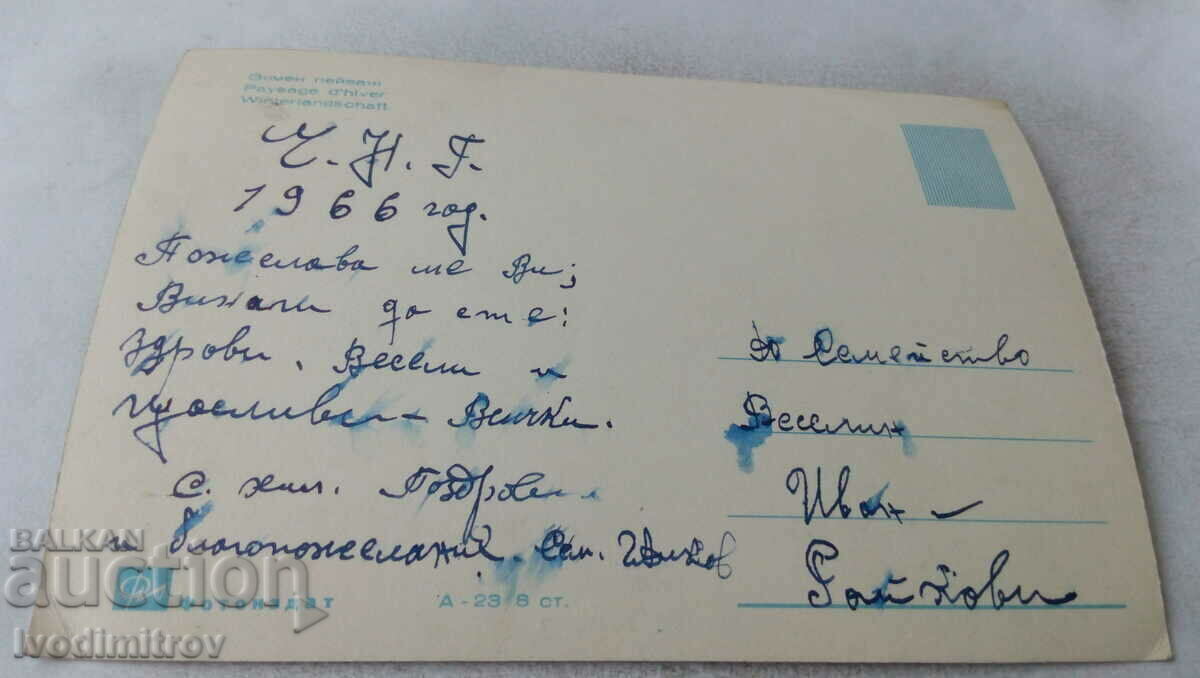 Зимен пейзаж
Paysage d'hiver
Winterlandschaft
Ч. Н. Г.
1966 год.
Пожелава ме Ви;
Винаги да сте:
Здрави, Весели и
щасливи Всички.
С. хил. Поздрави
и благопожелания. Сем.
До Семейство
Веселин
Иван
Райкови
Фотоиздат
А-23 8 ст.
BALKAN
auction
Ivodimitrov